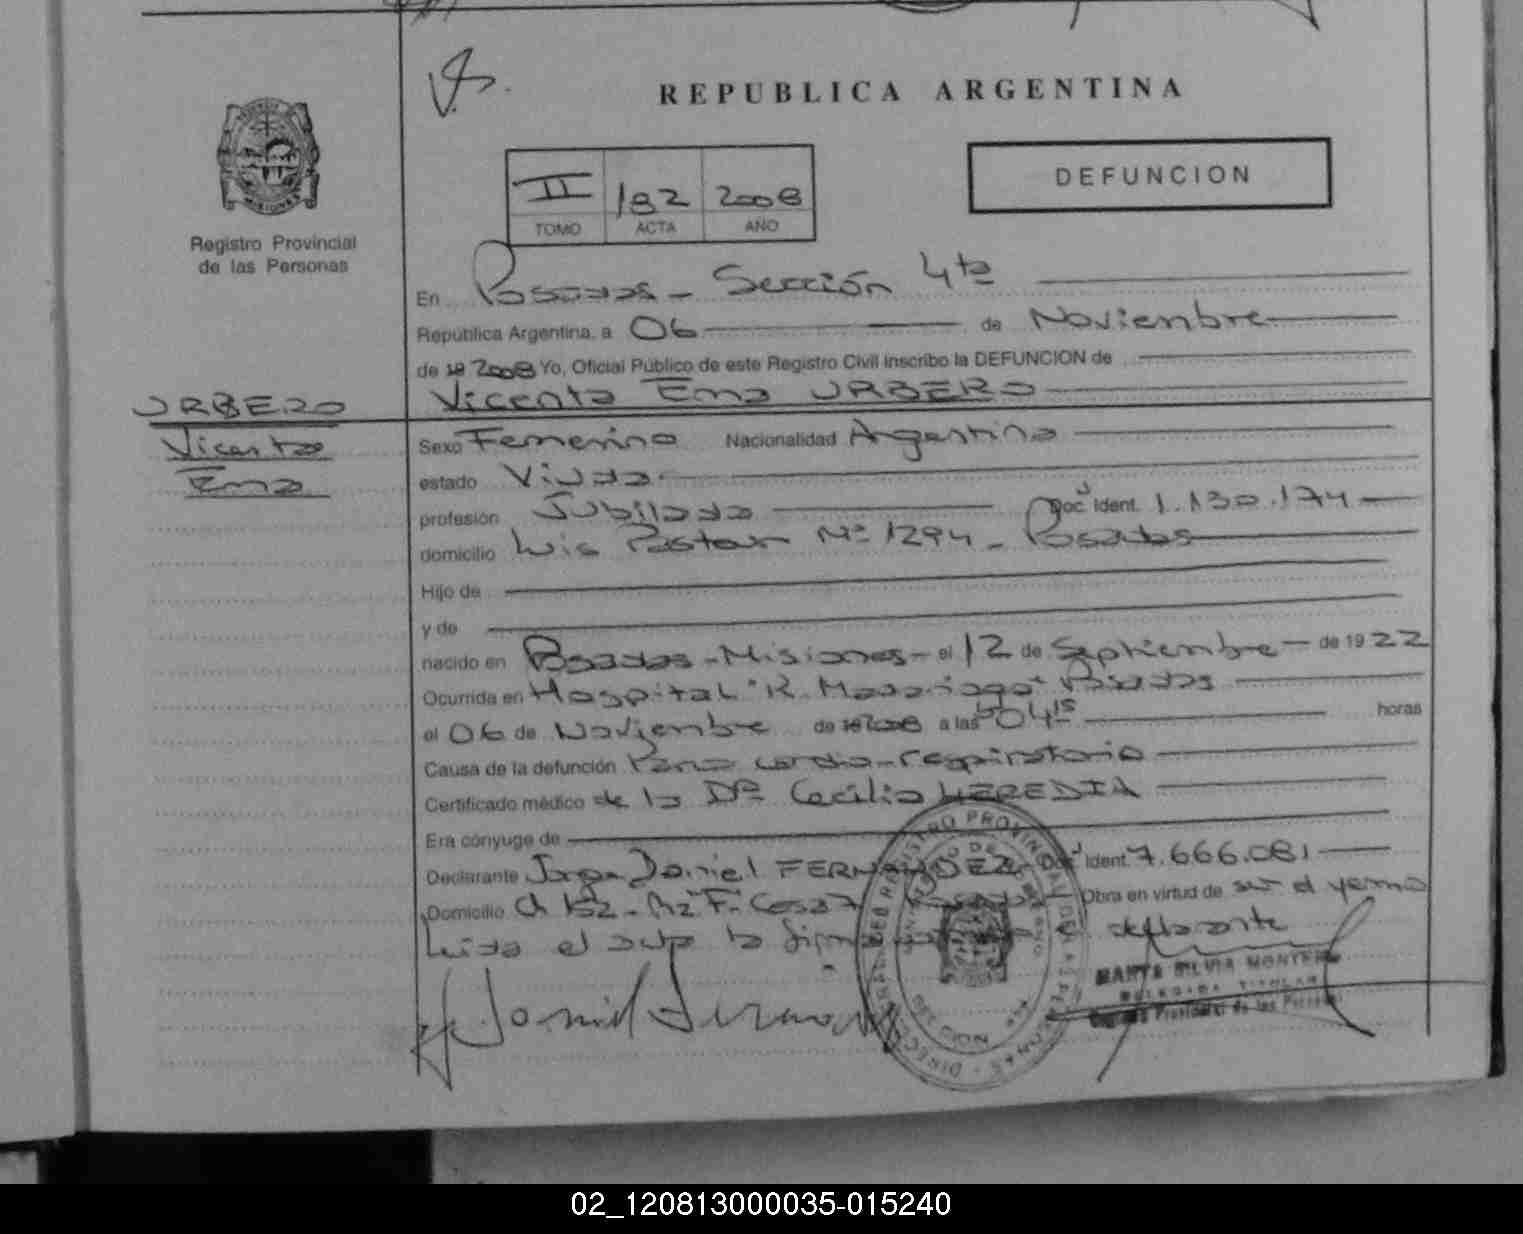 REPUBLICA ARGENTINA
DEFUNCION
II 182 2008
TOMO ACTA AÑO
MISIONES
Registro Provincial
de las Personas
En Posadas - Sección 4ta
República Argentina, a 06 de Noviembre
de 19 2008 Yo, Oficial Público de este Registro Civil inscribo la DEFUNCION de
Vicenta Ema URBERO
URBERO
Vicenta
Ema
Sexo Femenino Nacionalidad Argentina
estado Viuda
profesión Jubilada Doc. Ident. 1.130.174
domicilio Luis Pasteur Nº 1294 - Posadas
Hijo de
y de
nacido en Posadas - Misiones - el 12 de Septiembre - de 1922
Ocurrida en Hospital "R. Madariaga" Posadas
el 06 de Noviembre de 19 2008 a las 04 15 horas
Causa de la defunción Paro cardio-respiratorio
Certificado médico de la Dra Cecilia HEREDIA
Era cónyuge de
Declarante Jorge Daniel FERNANDEZ Doc. Ident. 7.666.081
Domicilio Ch 152 - Mz "F" - Casa 7 Posadas Obra en virtud de ser el yerno
Leída el acta la firma el declarante
MARTA SILVIA
DELEGADA TITULAR
Registro Provincial de las Personas
02_120813000035-015240